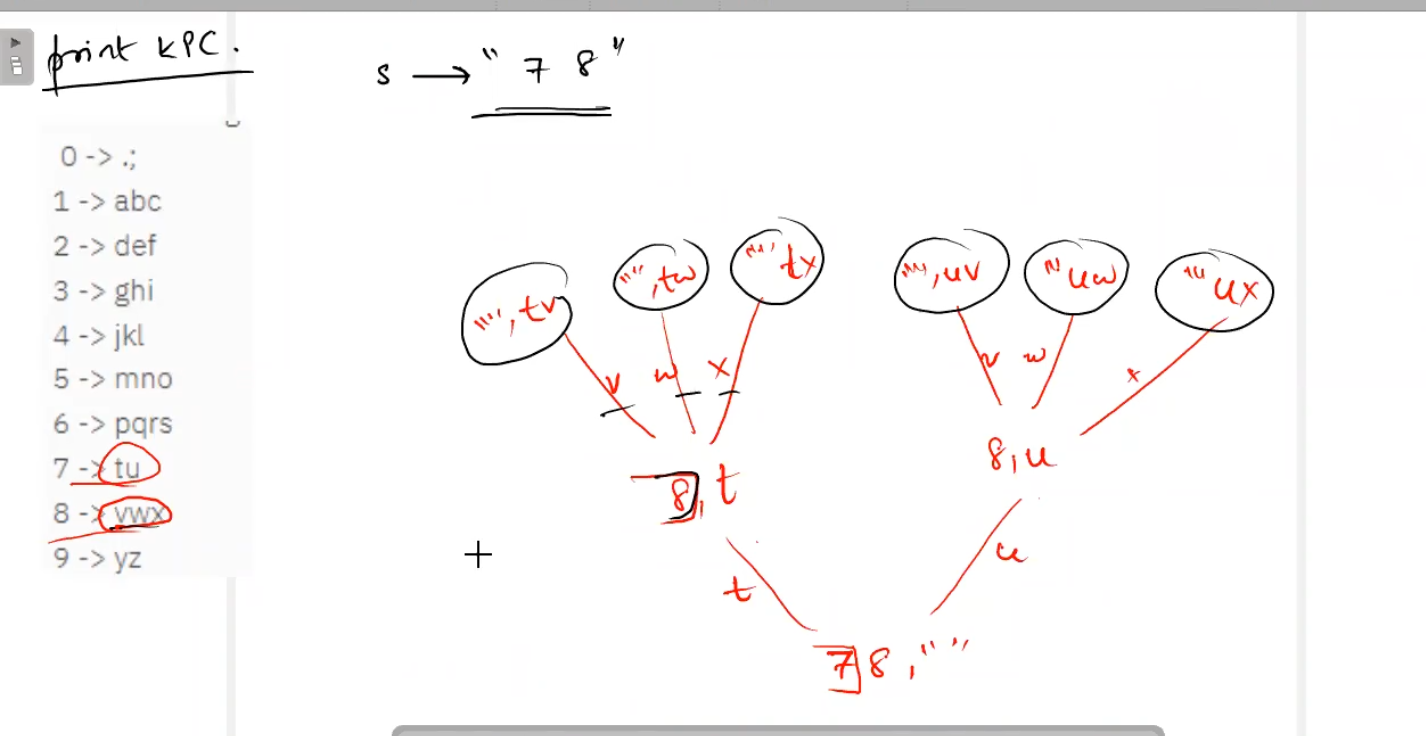 print KPC.
s → " 7 8 "
0 -> .;
1 -> abc
2 -> def
3 -> ghi
4 -> jkl
5 -> mno
6 -> pqrs
7 -> tu
8 -> vwx
9 -> yz
"", tv
"", tw
"" tx
"", uv
"" uw
"" ux
v w x
v w x
8, t
8, u
t
u
7 8, " "